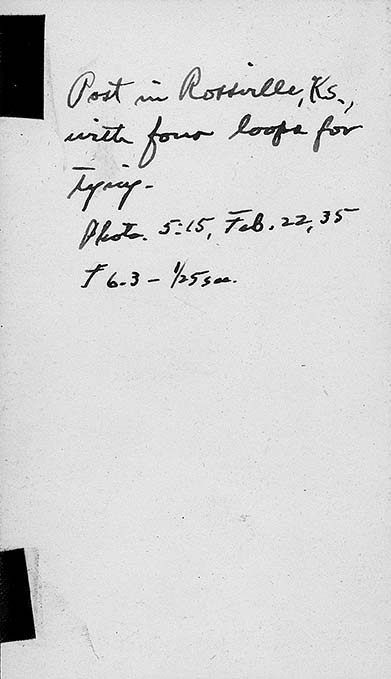 Post in Rossville, Ks.,
with four loops for
tying-
Photo. 5:15, Feb. 22, 35
F 6.3 - 1/25 sec.